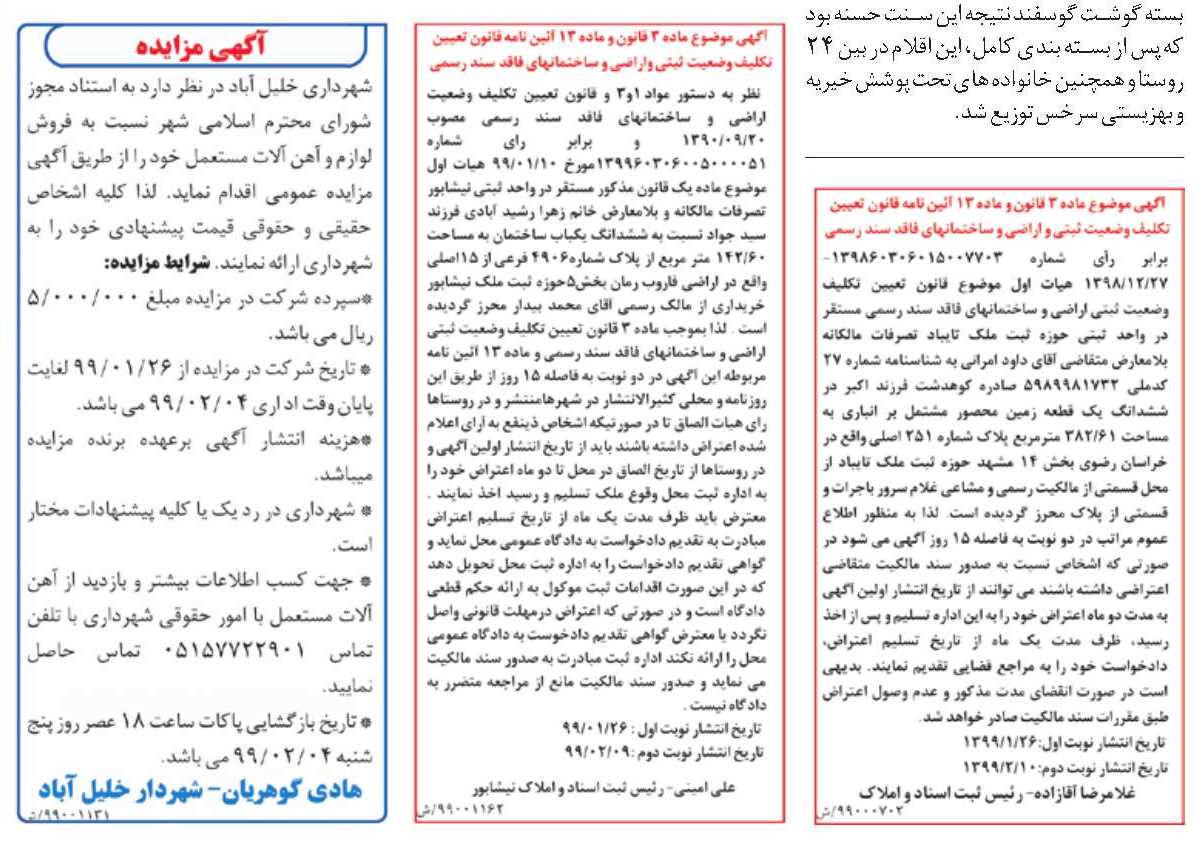 بسته گوشت گوسفند نتیجه این سنت حسنه بود
که پس از بسته بندی کامل، این اقلام در بین ۲۴
روستا و همچنین خانواده های تحت پوشش خیریه
و بهزیستی سرخس توزیع شد.
آگهی موضوع ماده ۳ قانون و ماده ۱۳ آئین نامه قانون تعیین
تکلیف وضعیت ثبتی و اراضی و ساختمانهای فاقد سند رسمی
برابر رأی شماره ۱۳۹۸۶۰۳۰۶۰۱۵۰۰۷۷۰۳-
۱۳۹۸/۱۲/۲۷ هیات اول موضوع قانون تعیین تکلیف
وضعیت ثبتی اراضی و ساختمانهای فاقد سند رسمی مستقر
در واحد ثبتی حوزه ثبت ملک تایباد تصرفات مالکانه
بلامعارض متقاضی آقای داود امرانی به شناسنامه شماره ۲۷
کدملی ۵۹۸۹۹۸۱۷۳۲ صادره کوهدشت فرزند اکبر در
ششدانگ یک قطعه زمین محصور مشتمل بر انباری به
مساحت ۳۸۲/۶۱ مترمربع پلاک شماره ۲۵۱ اصلی واقع در
خراسان رضوی بخش ۱۴ مشهد حوزه ثبت ملک تایباد از
محل قسمتی از مالکیت رسمی و مشاعی غلام سرور باجرات و
قسمتی از پلاک محرز گردیده است. لذا به منظور اطلاع
عموم مراتب در دو نوبت به فاصله ۱۵ روز آگهی می شود در
صورتی که اشخاص نسبت به صدور سند مالکیت متقاضی
اعتراضی داشته باشند می توانند از تاریخ انتشار اولین آگهی
به مدت دو ماه اعتراض خود را به این اداره تسلیم و پس از اخذ
رسید، ظرف مدت یک ماه از تاریخ تسلیم اعتراض،
دادخواست خود را به مراجع قضایی تقدیم نمایند. بدیهی
است در صورت انقضای مدت مذکور و عدم وصول اعتراض
طبق مقررات سند مالکیت صادر خواهد شد.
تاریخ انتشار نوبت اول:۱۳۹۹/۱/۲۶
تاریخ انتشار نوبت دوم:۱۳۹۹/۲/۱۰
غلامرضا آقازاده- رئیس ثبت اسناد و املاک
۹۹۰۰۰۷۰۲/ش
آگهی موضوع ماده ۳ قانون و ماده ۱۳ آئین نامه قانون تعیین
تکلیف وضعیت ثبتی واراضی و ساختمانهای فاقد سند رسمی
نظر به دستور مواد ۱و۳ و قانون تعیین تکلیف وضعیت
اراضی و ساختمانهای فاقد سند رسمی مصوب
۱۳۹۰/۰۹/۲۰ و برابر رای شماره
۱۳۹۹۶۰۳۰۶۰۰۵۰۰۰۰۵۱مورخ ۹۹/۰۱/۱۰ هیات اول
موضوع ماده یک قانون مذکور مستقر در واحد ثبتی نیشابور
تصرفات مالکانه و بلامعارض خانم زهرا رشید آبادی فرزند
سید جواد نسبت به ششدانگ یکباب ساختمان به مساحت
۱۴۲/۶۰ متر مربع از پلاک شماره۴۹۰۶ فرعی از ۱۵اصلی
واقع در اراضی فاروب رمان بخش۵حوزه ثبت ملک نیشابور
خریداری از مالک رسمی آقای محمد بیدار محرز گردیده
است . لذا بموجب ماده ۳ قانون تعیین تکلیف وضعیت ثبتی
اراضی و ساختمانهای فاقد سند رسمی و ماده ۱۳ آئین نامه
مربوطه این آگهی در دو نوبت به فاصله ۱۵ روز از طریق این
روزنامه و محلی کثیرالانتشار در شهرهامنتشر و در روستاها
رای هیات الصاق تا در صورتیکه اشخاص ذینفع به آرای اعلام
شده اعتراض داشته باشند باید از تاریخ انتشار اولین آگهی و
در روستاها از تاریخ الصاق در محل تا دو ماه اعتراض خود را
به اداره ثبت محل وقوع ملک تسلیم و رسید اخذ نمایند .
معترض باید ظرف مدت یک ماه از تاریخ تسلیم اعتراض
مبادرت به تقدیم دادخواست به دادگاه عمومی محل نماید و
گواهی تقدیم دادخواست را به اداره ثبت محل تحویل دهد
که در این صورت اقدامات ثبت موکول به ارائه حکم قطعی
دادگاه است و در صورتی که اعتراض درمهلت قانونی واصل
نگردد یا معترض گواهی تقدیم دادخوست به دادگاه عمومی
محل را ارائه نکند اداره ثبت مبادرت به صدور سند مالکیت
می نماید و صدور سند مالکیت مانع از مراجعه متضرر به
دادگاه نیست .
تاریخ انتشار نوبت اول : ۹۹/۰۱/۲۶
تاریخ انتشار نوبت دوم :۹۹/۰۲/۰۹
علی امینی- رئیس ثبت اسناد و املاک نیشابور
۹۹۰۰۱۱۶۲/ش
آگهی مزایده
شهرداری خلیل آباد در نظر دارد به استناد مجوز
شورای محترم اسلامی شهر نسبت به فروش
لوازم و آهن آلات مستعمل خود را از طریق آگهی
مزایده عمومی اقدام نماید. لذا کلیه اشخاص
حقیقی و حقوقی قیمت پیشنهادی خود را به
شهرداری ارائه نمایند. شرایط مزایده:
*سپرده شرکت در مزایده مبلغ ۵/۰۰۰/۰۰۰
ریال می باشد.
* تاریخ شرکت در مزایده از ۹۹/۰۱/۲۶ لغایت
پایان وقت اداری ۹۹/۰۲/۰۴ می باشد.
*هزینه انتشار آگهی برعهده برنده مزایده
میباشد.
* شهرداری در رد یک یا کلیه پیشنهادات مختار
است.
* جهت کسب اطلاعات بیشتر و بازدید از آهن
آلات مستعمل با امور حقوقی شهرداری با تلفن
تماس ۰۵۱۵۷۷۲۲۹۰۱ تماس حاصل
نمایید.
* تاریخ بازگشایی پاکات ساعت ۱۸ عصر روز پنج
شنبه ۹۹/۰۲/۰۴ می باشد.
هادی گوهریان- شهردار خلیل آباد
۹۹۰۰۱۱۳۱/ش